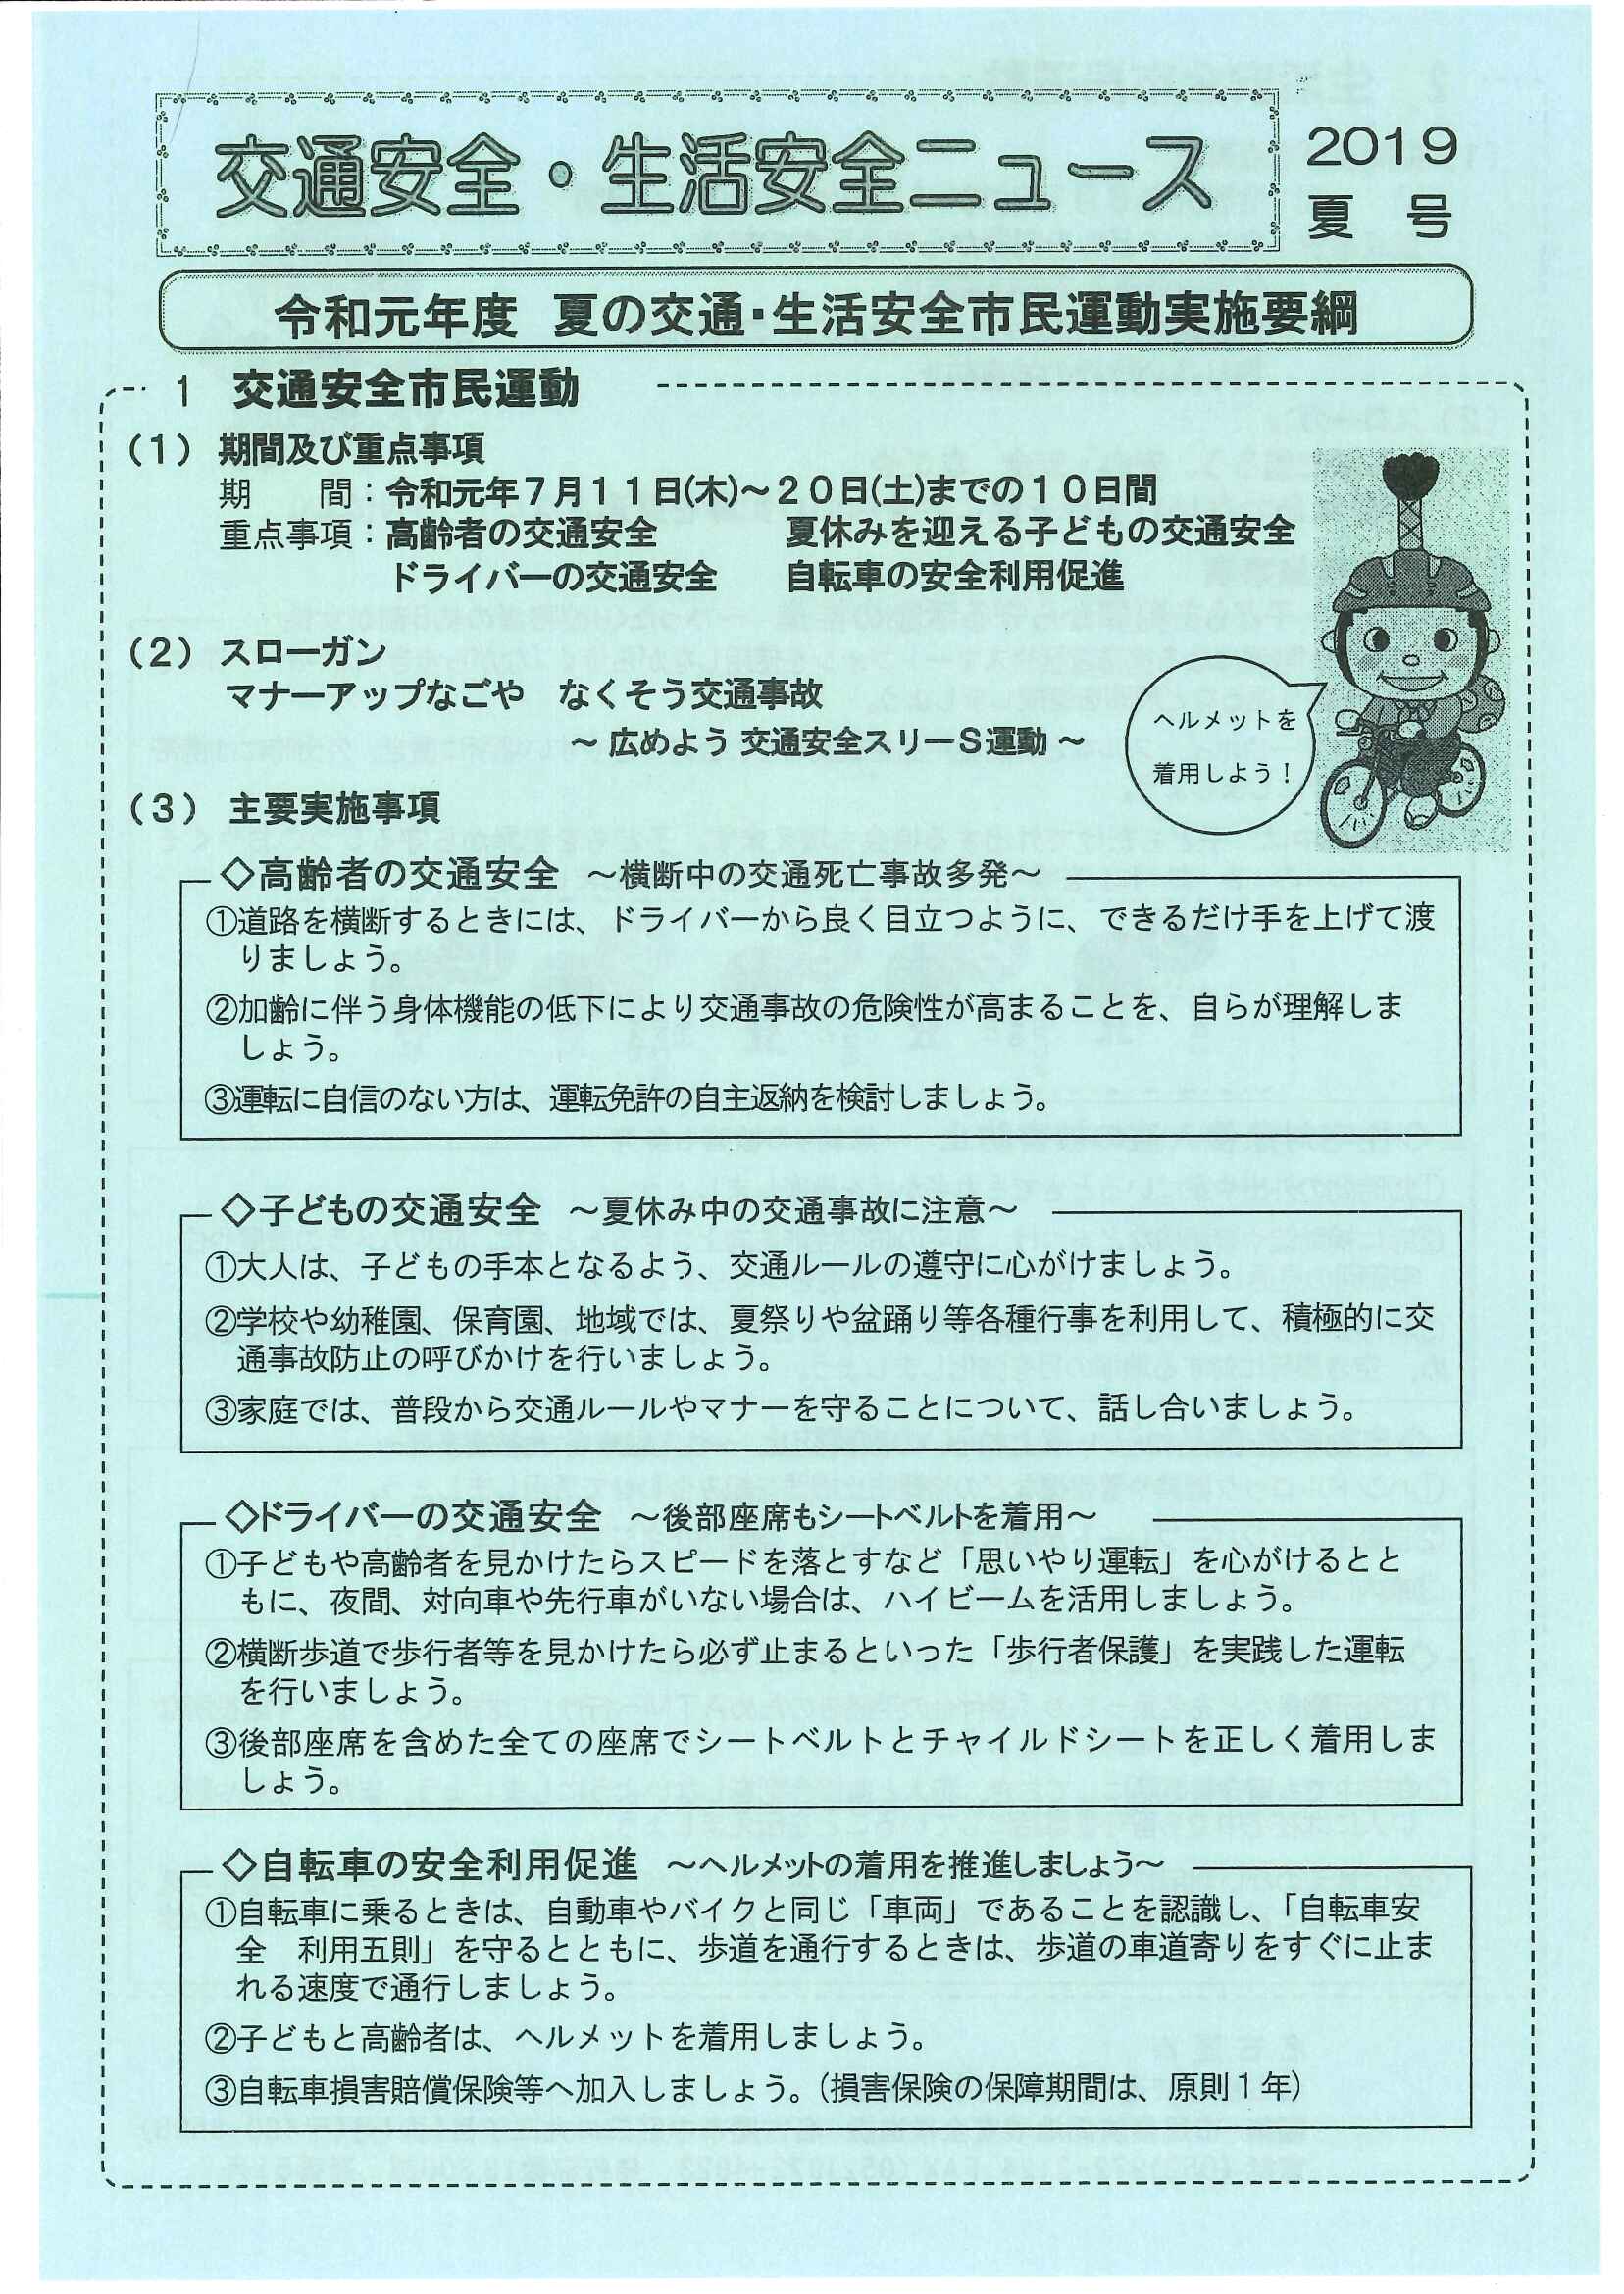 交通安全・生活安全ニュース
2019
夏 号
令和元年度 夏の交通・生活安全市民運動実施要綱
1 交通安全市民運動
(1) 期間及び重点事項
期 間：令和元年７月１１日(木)～２０日(土)までの１０日間
重点事項：高齢者の交通安全 夏休みを迎える子どもの交通安全
ドライバーの交通安全 自転車の安全利用促進
(2) スローガン
マナーアップなごや なくそう交通事故
～ 広めよう 交通安全スリーＳ運動 ～
ヘルメットを
着用しよう！
(3) 主要実施事項
◇高齢者の交通安全 ～横断中の交通死亡事故多発～
①道路を横断するときには、ドライバーから良く目立つように、できるだけ手を上げて渡
りましょう。
②加齢に伴う身体機能の低下により交通事故の危険性が高まることを、自らが理解しま
しょう。
③運転に自信のない方は、運転免許の自主返納を検討しましょう。
◇子どもの交通安全 ～夏休み中の交通事故に注意～
①大人は、子どもの手本となるよう、交通ルールの遵守に心がけましょう。
②学校や幼稚園、保育園、地域では、夏祭りや盆踊り等各種行事を利用して、積極的に交
通事故防止の呼びかけを行いましょう。
③家庭では、普段から交通ルールやマナーを守ることについて、話し合いましょう。
◇ドライバーの交通安全 ～後部座席もシートベルトを着用～
①子どもや高齢者を見かけたらスピードを落とすなど「思いやり運転」を心がけるとと
もに、夜間、対向車や先行車がいない場合は、ハイビームを活用しましょう。
②横断歩道で歩行者等を見かけたら必ず止まるといった「歩行者保護」を実践した運転
を行いましょう。
③後部座席を含めた全ての座席でシートベルトとチャイルドシートを正しく着用しま
しょう。
◇自転車の安全利用促進 ～ヘルメットの着用を推進しましょう～
①自転車に乗るときは、自動車やバイクと同じ「車両」であることを認識し、「自転車安
全 利用五則」を守るとともに、歩道を通行するときは、歩道の車道寄りをすぐに止ま
れる速度で通行しましょう。
②子どもと高齢者は、ヘルメットを着用しましょう。
③自転車損害賠償保険等へ加入しましょう。（損害保険の保障期間は、原則１年）